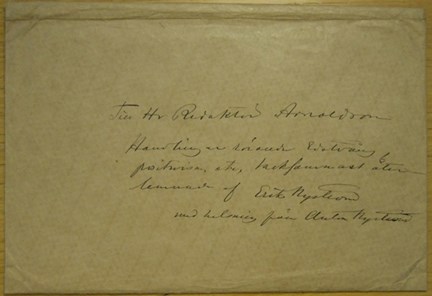 Till Hr Redaktör Arnoldson
Handlingar rörande
tacksammast åter-
lemnade af Erik Nyström
med helsning från Anton Nyström